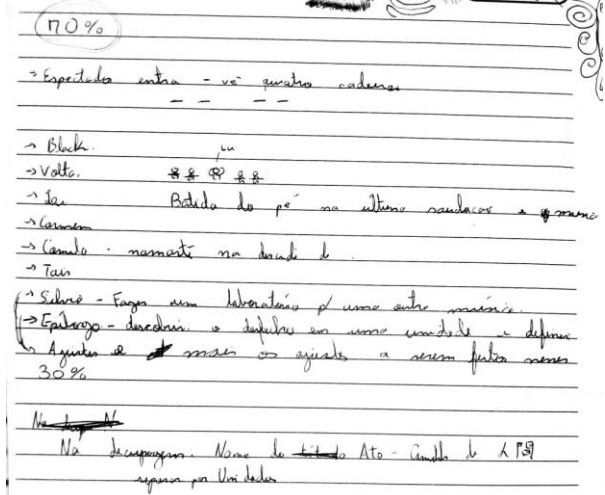 70%
→ Espectador entra - vê quatro cadeiras
→ Black.
Lu
→ Volta.
Batida do pé na ultima saudacao
→ Carmem
→ Camila - namastê na
→ Tais
→ Silvio - Fazer um laboratório p/ uma outra música.
→ Epílogo - descobrir o desfecho em uma unidade e definir
→ Ajustes mais os ajustes a serem feitos nesses
30%
Na decupagem. Nome do Ato - de 人間
separar por Unidades